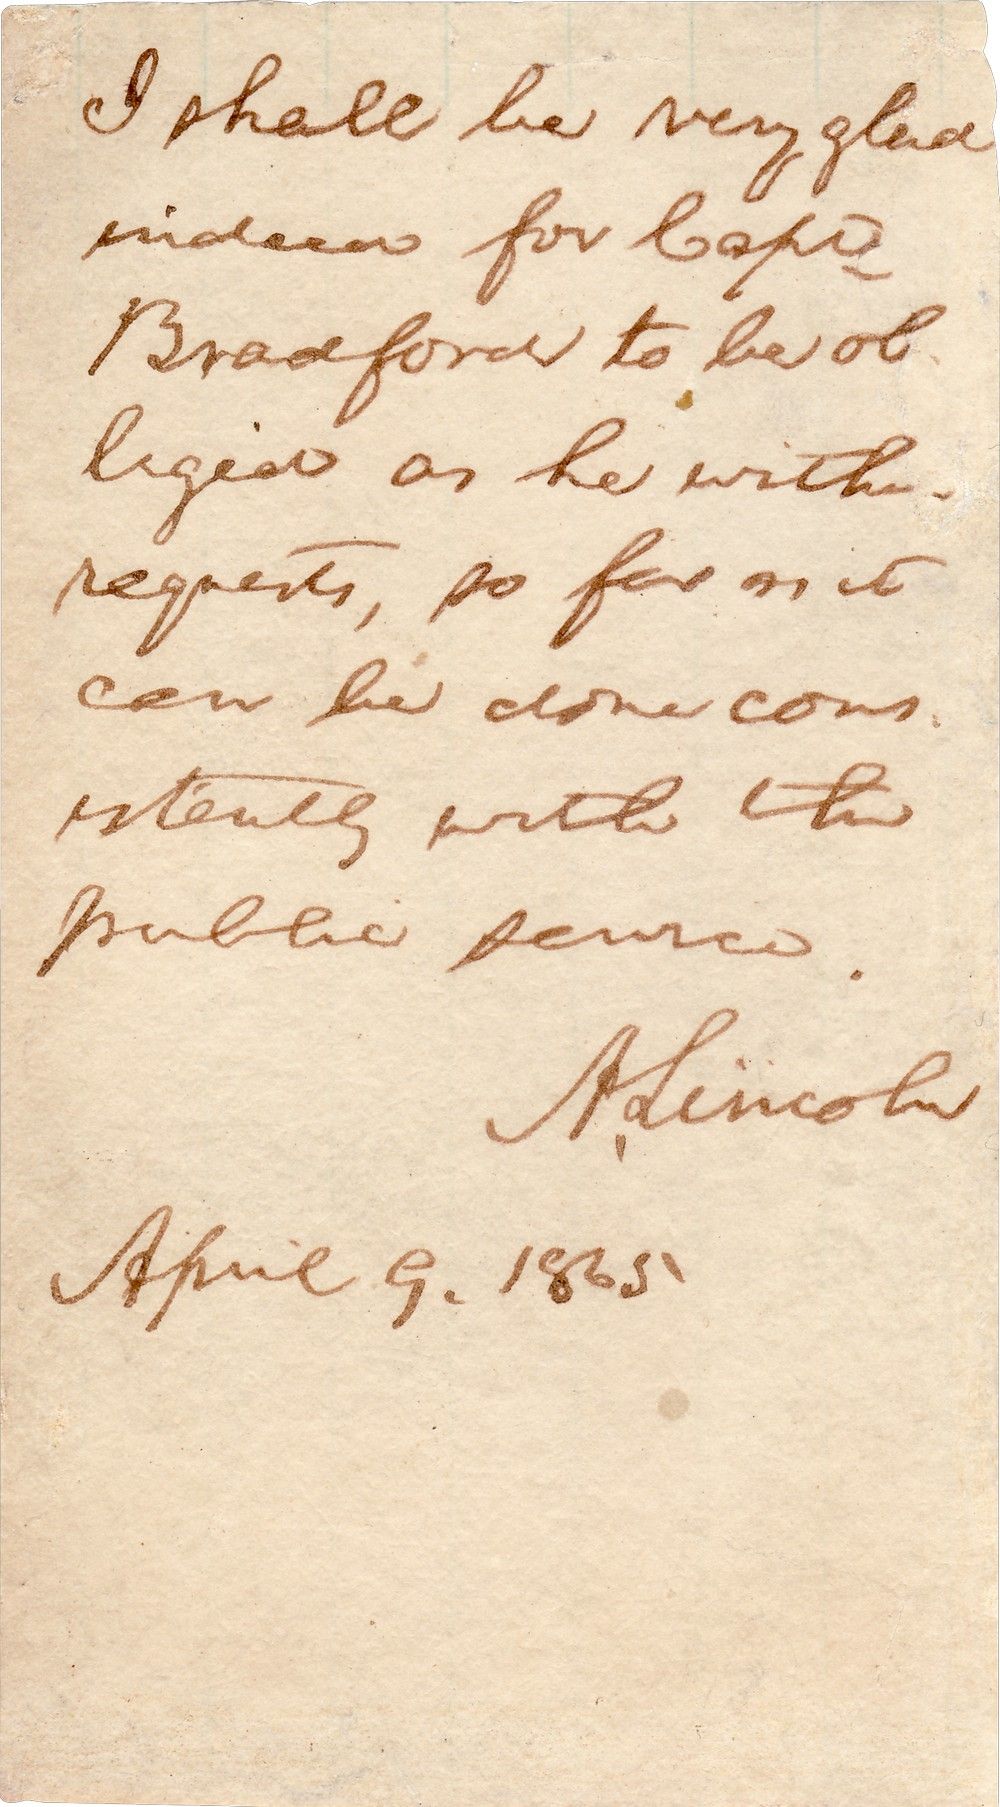 I shall be very glad
indeed for Capt.
Bradford to be ob-
liged as he within
requests, so far as it
can be done cons-
istently with the
public service.
A. Lincoln
April 9. 1865